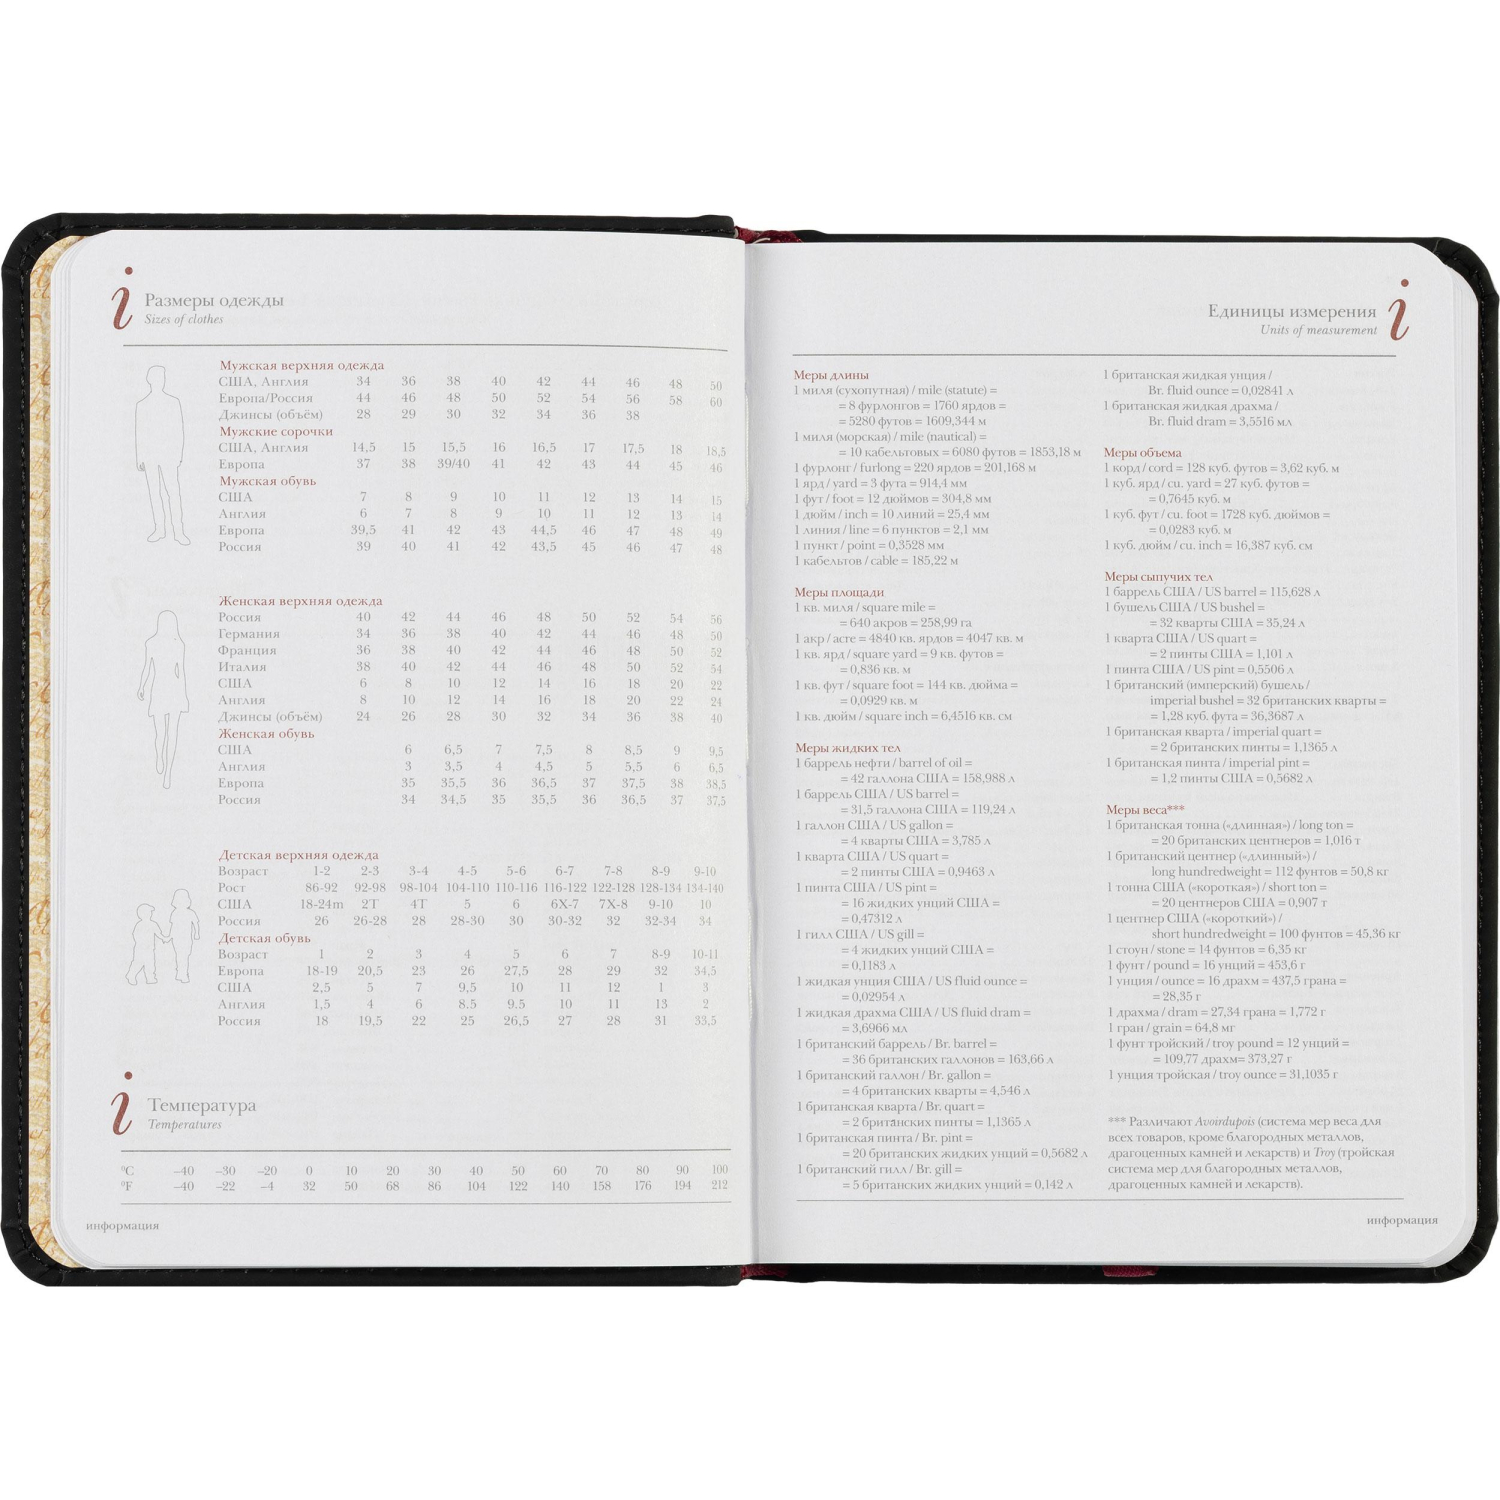 i Размеры одежды
Sizes of clothes
Мужская верхняя одежда
США, Англия 34 36 38 40 42 44 46 48 50
Европа/Россия 44 46 48 50 52 54 56 58 60
Джинсы (объём) 28 29 30 32 34 36 38
Мужские сорочки
США, Англия 14,5 15 15,5 16 16,5 17 17,5 18 18,5
Европа 37 38 39/40 41 42 43 44 45 46
Мужская обувь
США 7 8 9 10 11 12 13 14 15
Англия 6 7 8 9 10 11 12 13 14
Европа 39,5 41 42 43 44,5 46 47 48 49
Россия 39 40 41 42 43,5 45 46 47 48
Женская верхняя одежда
Россия 40 42 44 46 48 50 52 54 56
Германия 34 36 38 40 42 44 46 48 50
Франция 36 38 40 42 44 46 48 50 52
Италия 38 40 42 44 46 48 50 52 54
США 6 8 10 12 14 16 18 20 22
Англия 8 10 12 14 16 18 20 22 24
Джинсы (объём) 24 26 28 30 32 34 36 38 40
Женская обувь
США 6 6,5 7 7,5 8 8,5 9 9,5
Англия 3 3,5 4 4,5 5 5,5 6 6,5
Европа 35 35,5 36 36,5 37 37,5 38 38,5
Россия 34 34,5 35 35,5 36 36,5 37 37,5
Детская верхняя одежда
Возраст 1-2 2-3 3-4 4-5 5-6 6-7 7-8 8-9 9-10
Рост 86-92 92-98 98-104 104-110 110-116 116-122 122-128 128-134 134-140
США 18-24m 2T 4T 5 6 6X-7 7X-8 9-10 10
Россия 26 26-28 28 28-30 30 30-32 32 32-34 34
Детская обувь
Возраст 1 2 3 4 5 6 7 8-9 10-11
Европа 18-19 20,5 23 26 27,5 28 29 32 34,5
США 2,5 5 7 9,5 10 11 12 1 3
Англия 1,5 4 6 8.5 9.5 10 11 13 2
Россия 18 19,5 22 25 26,5 27 28 31 33,5
i Температура
Temperatures
°C –40 –30 –20 0 10 20 30 40 50 60 70 80 90 100
°F –40 –22 –4 32 50 68 86 104 122 140 158 176 194 212
информация
Единицы измерения i
Units of measurement
Меры длины
1 миля (сухопутная) / mile (statute) =
= 8 фурлонгов = 1760 ярдов =
= 5280 футов = 1609,344 м
1 миля (морская) / mile (nautical) =
= 10 кабельтовых = 6080 футов = 1853,18 м
1 фурлонг / furlong = 220 ярдов = 201,168 м
1 ярд / yard = 3 фута = 914,4 мм
1 фут / foot = 12 дюймов = 304,8 мм
1 дюйм / inch = 10 линий = 25,4 мм
1 линия / line = 6 пунктов = 2,1 мм
1 пункт / point = 0,3528 мм
1 кабельтов / cable = 185,22 м
Меры площади
1 кв. миля / square mile =
= 640 акров = 258,99 га
1 акр / acre = 4840 кв. ярдов = 4047 кв. м
1 кв. ярд / square yard = 9 кв. футов =
= 0,836 кв. м
1 кв. фут / square foot = 144 кв. дюйма =
= 0,0929 кв. м
1 кв. дюйм / square inch = 6,4516 кв. см
Меры жидких тел
1 баррель нефти / barrel of oil =
= 42 галлона США = 158,988 л
1 баррель США / US barrel =
= 31,5 галлона США = 119,24 л
1 галлон США / US gallon =
= 4 кварты США = 3,785 л
1 кварта США / US quart =
= 2 пинты США = 0,9463 л
1 пинта США / US pint =
= 16 жидких унций США =
= 0,47312 л
1 гилл США / US gill =
= 4 жидких унций США =
= 0,1183 л
1 жидкая унция США / US fluid ounce =
= 0,02954 л
1 жидкая драхма США / US fluid dram =
= 3,6966 мл
1 британский баррель / Br. barrel =
= 36 британских галлонов = 163,66 л
1 британский галлон / Br. gallon =
= 4 британских кварты = 4,546 л
1 британская кварта / Br. quart =
= 2 британских пинты = 1,1365 л
1 британская пинта / Br. pint =
= 20 британских жидких унций = 0,5682 л
1 британский гилл / Br. gill =
= 5 британских жидких унций = 0,142 л
1 британская жидкая унция /
Br. fluid ounce = 0,02841 л
1 британская жидкая драхма /
Br. fluid dram = 3,5516 мл
Меры объема
1 корд / cord = 128 куб. футов = 3,62 куб. м
1 куб. ярд / cu. yard = 27 куб. футов =
= 0,7645 куб. м
1 куб. фут / cu. foot = 1728 куб. дюймов =
= 0,0283 куб. м
1 куб. дюйм / cu. inch = 16,387 куб. см
Меры сыпучих тел
1 баррель США / US barrel = 115,628 л
1 бушель США / US bushel =
= 32 кварты США = 35,24 л
1 кварта США / US quart =
= 2 пинты США = 1,101 л
1 пинта США / US pint = 0,5506 л
1 британский (имперский) бушель /
imperial bushel = 32 британских кварты =
= 1,28 куб. фута = 36,3687 л
1 британская кварта / imperial quart =
= 2 британских пинты = 1,1365 л
1 британская пинта / imperial pint =
= 1,2 пинты США = 0,5682 л
Меры веса***
1 британская тонна («длинная») / long ton =
= 20 британских центнеров = 1,016 т
1 британский центнер («длинный») /
long hundredweight = 112 фунтов = 50,8 кг
1 тонна США («короткая») / short ton =
= 20 центнеров США = 0,907 т
1 центнер США («короткий») /
short hundredweight = 100 фунтов = 45,36 кг
1 стоун / stone = 14 фунтов = 6,35 кг
1 фунт / pound = 16 унций = 453,6 г
1 унция / ounce = 16 драхм = 437,5 грана =
= 28,35 г
1 драхма / dram = 27,34 грана = 1,772 г
1 гран / grain = 64,8 мг
1 фунт тройский / troy pound = 12 унций =
= 109,77 драхм= 373,27 г
1 унция тройская / troy ounce = 31,1035 г
*** Различают Avoirdupois (система мер веса для
всех товаров, кроме благородных металлов,
драгоценных камней и лекарств) и Troy (тройская
система мер для благородных металлов,
драгоценных камней и лекарств).
информация